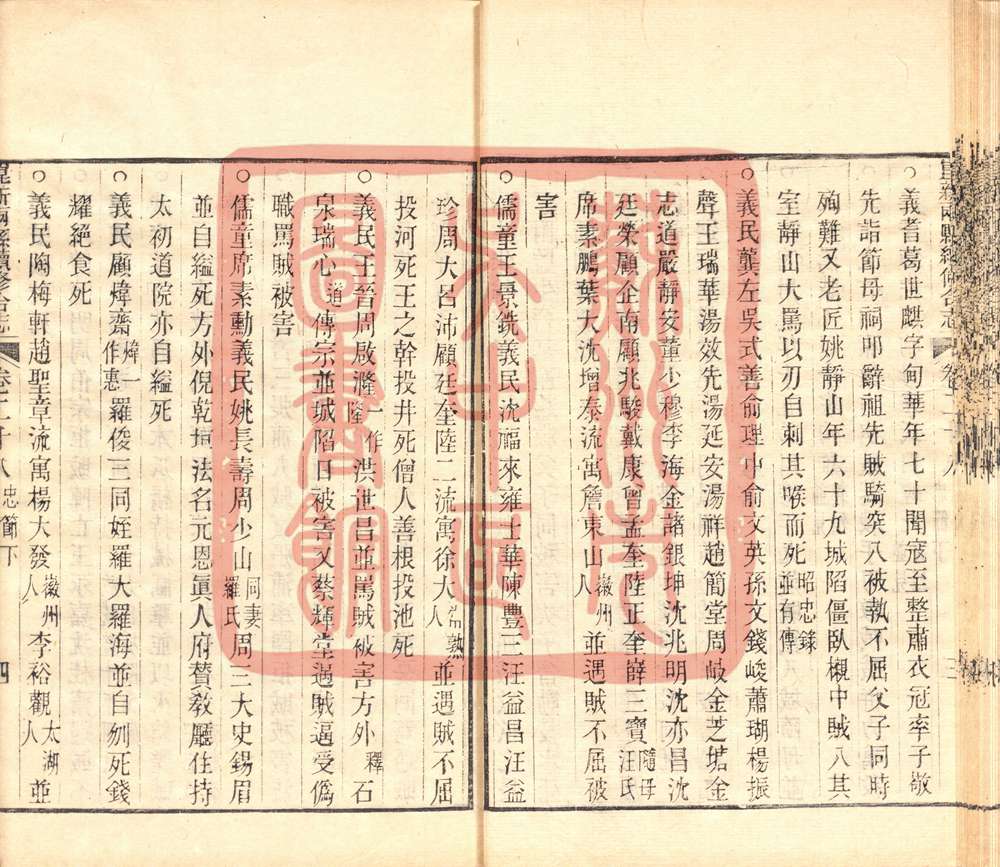 ○義耆葛世麒字甸華年七十聞寇至整肅衣冠率子敬
先詣節母祠叩辭祖先賊騎突入被執不屈父子同時
殉難又老匠姚靜山年六十九城陷僵臥櫬中賊入其
室靜山大罵以刃自刺其喉而死昭忠錄並有傳
○義民龔左吳式善俞理中俞文英孫文錢峻蕭瑚楊振
聲王瑞華湯效先湯延安湯祥趙簡堂周岐金芝楛金
志道嚴靜安董少穆李海金諸銀坤沈兆明沈亦昌沈
廷榮顧企南顧兆駿戴康曾孟奎陸正奎薛三寶隨母汪氏
席素鵬葉大沈增泰流寓詹東山徽州人並遇賊不屈被
害
○儒童王景銑義民沈福來雍士華陳豐三汪益昌汪益
珍周大呂沛顧廷奎陸二流寓徐大常熟人並遇賊不屈
投河死王之幹投井死僧人善根投池死
○義民王晉周啟瀊一作隆洪世昌並罵賊被害方外釋石
泉瑞心道傳宗並城陷日被害又蔡輝堂遇賊逼受僞
職罵賊被害
○儒童席素勳義民姚長壽周少山同妻羅氏周三大史錫眉
並自縊死方外倪乾拘法名元恩眞人府贊敎廳住持
太初道院亦自縊死
○義民顧煒齋煒一作惠羅俊三同姪羅大羅海並自刎死錢
耀絕食死
○義民陶梅軒趙聖章流寓楊大發徽州人李裕觀太湖人並
卷二十八
忠節下
四